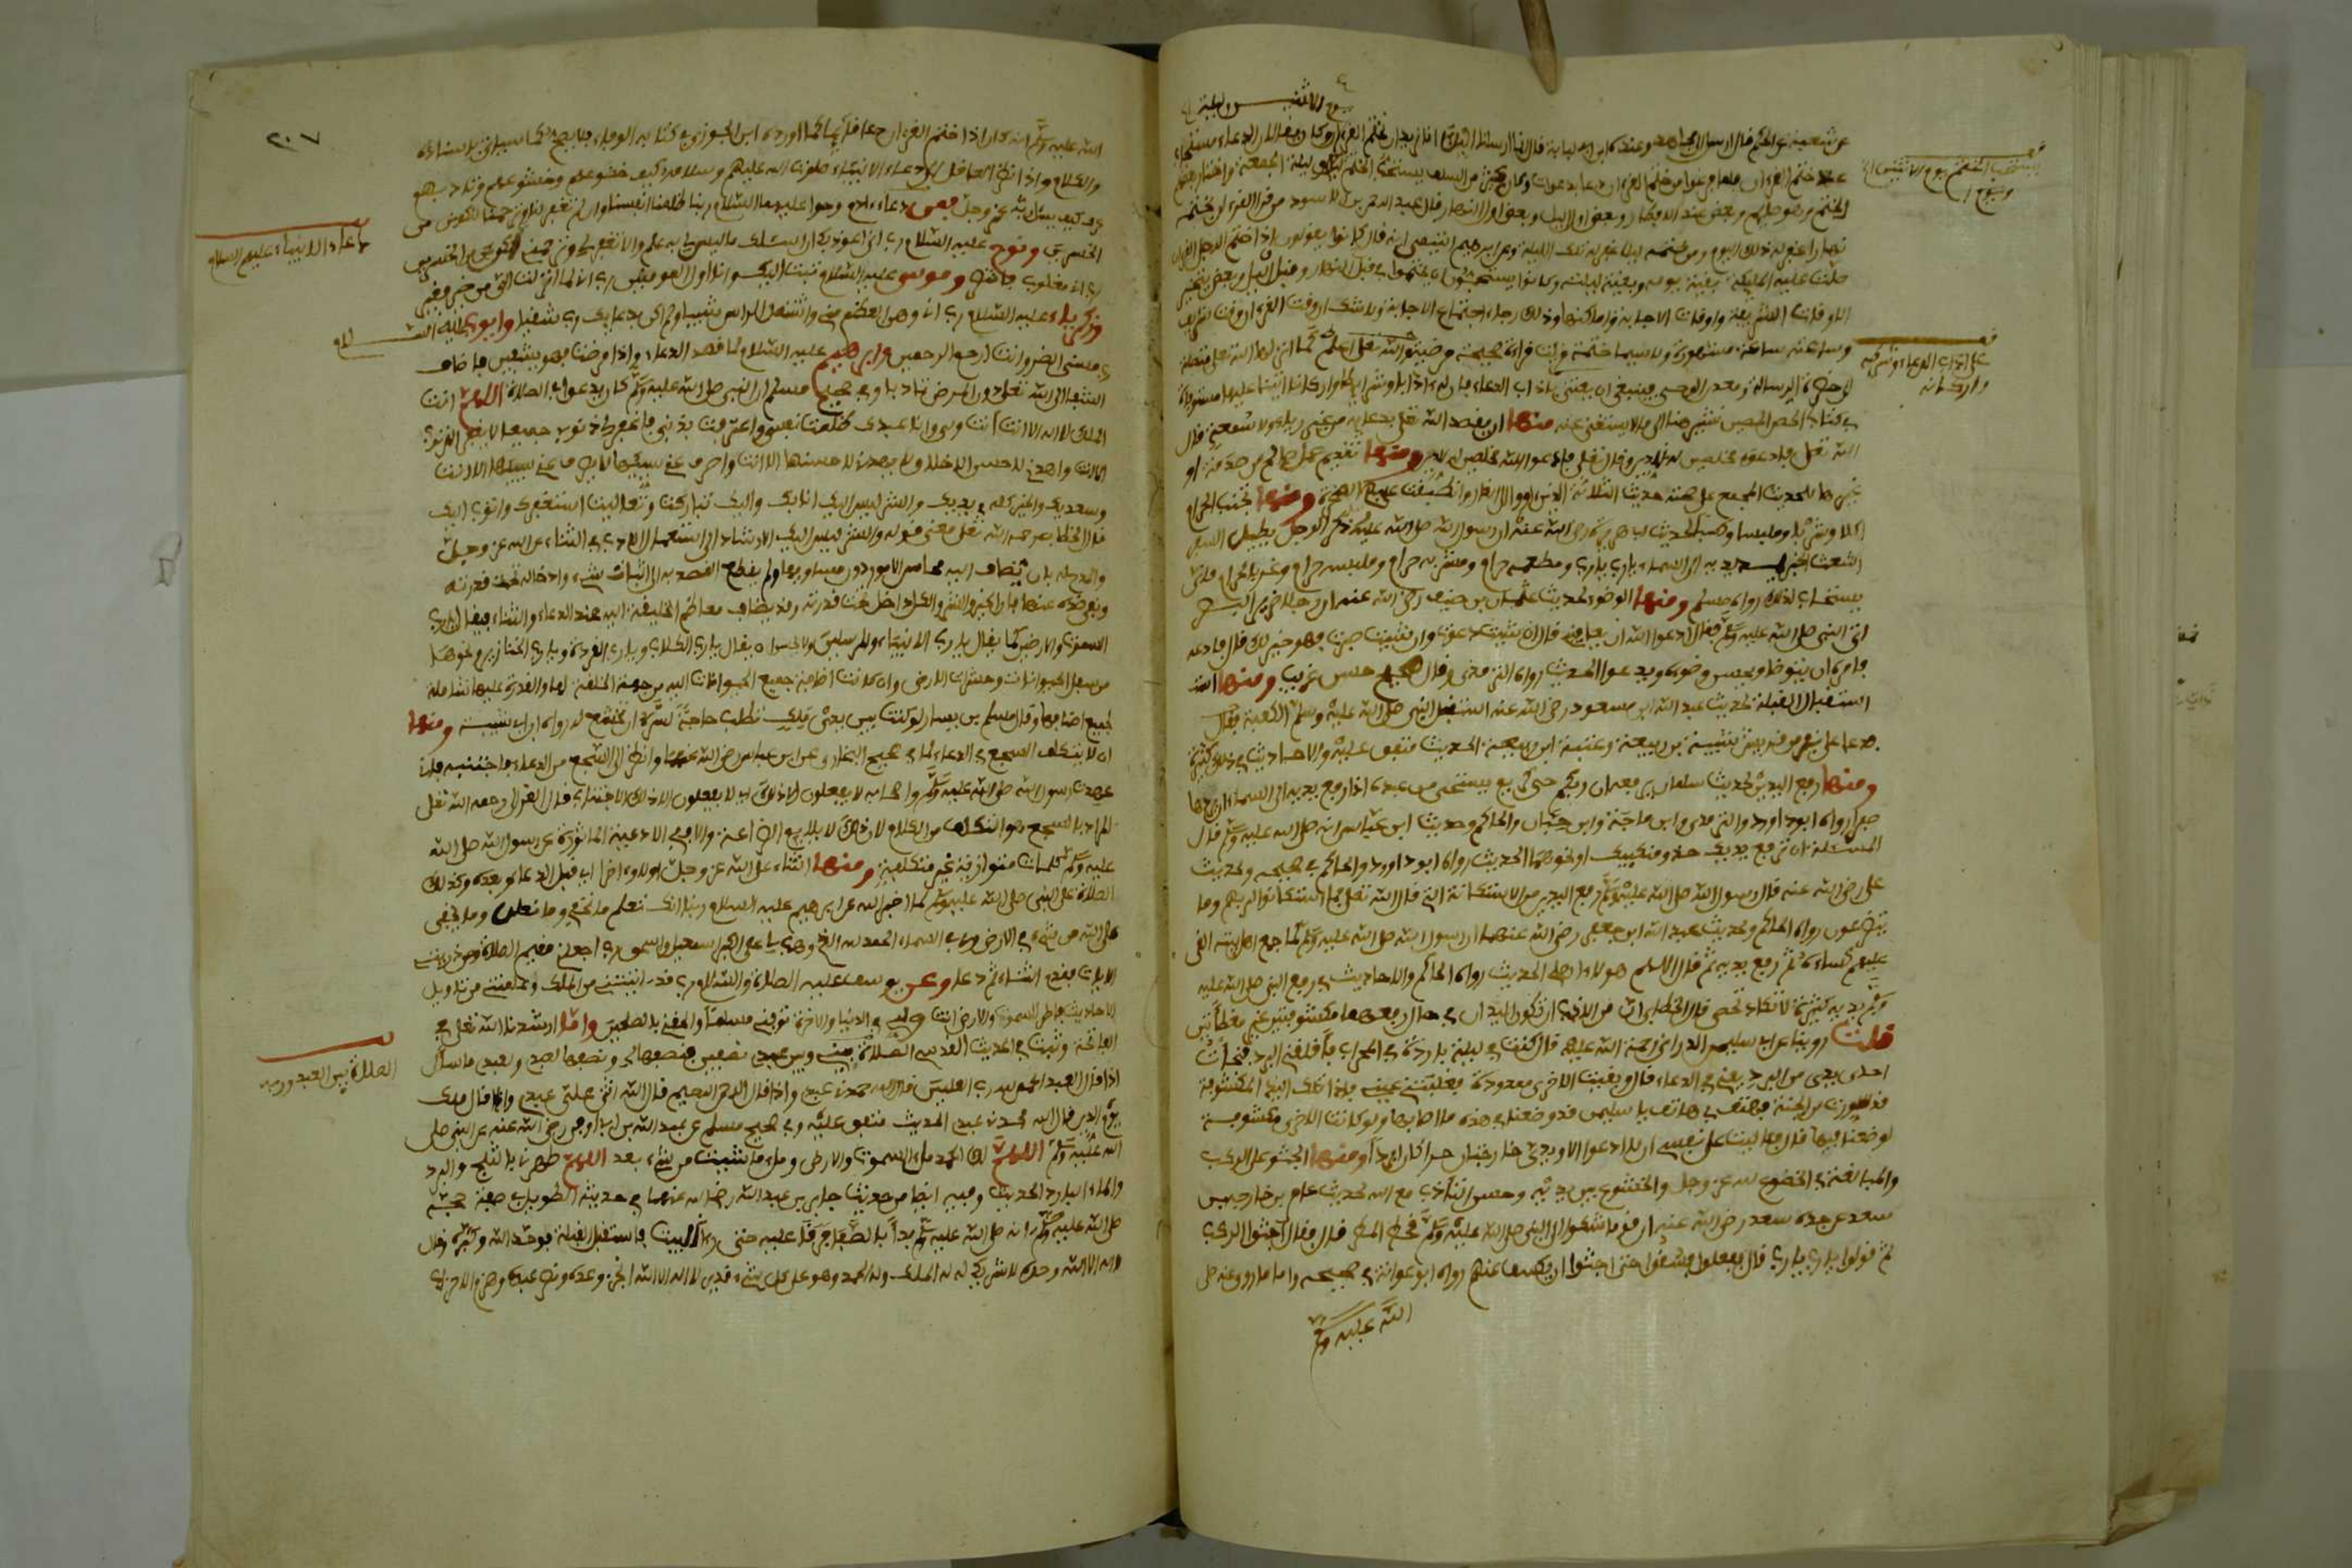 يوم الاثنين وليلته
عن شعبة عن الحكم قال ارسل الي مجاهد وعنده ابن ابي لبابة قال انا ارسلنا اليك انا نريد ان نختم القرءان وكان يقال ان الدعاء مستجاب
عند ختم القرءان فلما فرغوا من ختم القرءان دعا بدعوات وكان كثير من السلف يستحب الختم يوم الاثنين وليلة الجمعة واختار بعضهم
نهارا غفر له ذلك اليوم ومن ختمه ليلا غفر له تلك الليلة وعن ابرهيم التيمي انه قال كانوا يقولون اذا ختم الرجل القرءان
صلت عليه الملائكة بقية يومه وبقية ليلته وكانوا يستحبون ان يختموا في قبل النهار وقبل الليل وبعض يتخير
الاوقات الشريفة واوقات الاجابة واماكنها وذلك رجاء اجتماع الاجابة ولا شك ان وقت القرءان وقت شريف
وساعته ساعة مشهودة ولا سيما ختمة
منها ان يقصد الله تعلى بدعايه من غير رياء ولا سمعة قال
الله تعلى فادعوه مخلصين له الدين وقال تعلى فادعوا الله مخلصين له الدين ومنها تقديم عمل صالح من صدقة او
غيرها للحديث المجمع على صحته حديث الثلاثة الذين اووا الى الغار وانطبقت عليهم الصخرة ومنها تجنب الحرام
اكلا وشربا ولبسا وكسبا لحديث ابي هريرة رضي الله عنه ان رسول الله صلى الله عليه وسلم ذكر الرجل يطيل السفر
اشعث اغبر يمد يديه الى السماء يارب يارب ومطعمه حرام ومشربه حرام وملبسه حرام وغذي بالحرام فانى
يستجاب لذلك رواه مسلم ومنها الوضوء لحديث عثمان بن حنيف رضي الله عنه ان رجلا ضرير البصر
اتى النبي صلى الله عليه وسلم فقال ادعوا الله ان يعافيني قال ان شئت دعوت وان شئت صبرت فهو خير لك قال فادعه
فامره ان يتوضأ ويحسن وضوءه ويدعوا الحديث رواه الترمذي وقال صحيح حسن غريب ومنها
استقبال القبلة لحديث عبد الله ابن مسعود رضي الله عنه استقبل النبي صلى الله عليه وسلم الكعبة فقال
فدعا على نفر من قريش شيبة بن ربيعة وعتبة ابن ربيعة الحديث متفق عليه والاحاديث في ذلك كثيرة
ومنها رفع اليدين لحديث سلمان يرفعه ان ربكم حيي كريم يستحيي من عبده اذا رفع يديه الى السماء ان يردهما
صفرا رواه ابو داود والترمذي وابن ماجة وابن حبان والحاكم وحديث ابن عباس انه صلى الله عليه وسلم قال
المسئلة ان ترفع يديك حذو منكبيك او نحوهما الحديث رواه ابو داوود والحاكم في صحيحه ولحديث
علي رضي الله عنه قال رسول الله صلى الله عليه وسلم رفع اليدين من الاستكانة التي قال الله تعلى فما استكانوا لربهم وما
يتضرعون رواه الحاكم ولحديث عبد الله ابن جعفر رضي الله عنهما ان رسول الله صلى الله عليه وسلم لما جمع اهل بيته القى
عليهم كساءه ثم رفع يديه ثم قال اللهم هولاء اهلي الحديث رواه الحاكم والاحاديث في رفع النبي صلى الله عليه
وسلم يديه كثيرة لا تكاد تحصى قال الخطابي ان من الادب ان تكون اليدان في حال رفعهما مكشوفتين غير مغطاتين
قلت روينا عن ابي سليمن الداراني رحمة الله عليه قال كنت في ليلة باردة في المحراب فاقلقني البرد فخبأت
احدى يدي من البرد يعني في الدعاء قال وبقيت الاخرى ممدودة فغلبتني عيني فاذا تلك اليد المكشوفة
قد سورت من الجنة فهتف بي هاتف يا سليمن قد وضعنا في هذه ما اصابها ولو كانت الاخرى مكشوفة
لوضعنا فيها قال فآليت على نفسي ان لا ادعوا الا ويدي خارجتان حرا كان او بردا ومنها الجثو على الركب
والمبالغة في الخضوع لله عز وجل والخشوع بين يديه وحسن التأدب مع الله لحديث عامر بن خارجة بن
سعد عن جده سعد رضي الله عنه ان قوما شكوا الى النبي صلى الله عليه وسلم قحط المطر قال فقال اجثوا على الركب
ثم قولوا يارب يارب قال ففعلوا فسقوا حتى احبوا ان يكشف عنهم رواه ابو عوانة في صحيحه واما ما روي عنه صلى
الله عليه وسلم
يستحب الختم يوم الاثنين
على اداب الدعاء وشرايطه
واركانه
٢٠٧
الله عليه وسلم انه كان اذا ختم القرءان دعا قايما كما اورده ابن الجوزي في كتابه الوفاء فلا يصح كما سياتي لاسناده
والكلام واذا نظر العاقل الى دعاء الانبياء صلوات الله عليهم وسلامه كيف خضوعهم وخشوعهم وتادبهم
عرف كيف يسال ربه عز وجل فمن دعاء ءادم وحوا عليهما السلام ربنا ظلمنا انفسنا وان لم تغفر لنا وترحمنا لنكونن من
الخسرين ونوح عليه السلام رب اني اعوذ بك ان اسئلك ما ليس لي به علم والا تغفر لي وترحمني اكن من الخسرين
رب اني مغلوب فانتصر وموسى عليه السلام تبت اليك وانا اول المومنين رب اني لما انزلت الي من خير فقير
وزكرياء عليه السلام رب اني وهن العظم مني واشتعل الراس شيبا ولم اكن بدعايك رب شقيا وايوب عليه السلام
رب مسني الضر وانت ارحم الرحمين وابرهيم عليه السلام لما قصد الدعاء واذا مرضت فهو يشفين فاضاف
الشفاء الى الله تعلى دون المرض تادبا وفي صحيح مسلم ان النبي صلى الله عليه وسلم كان يدعوا في الصلاة اللهم انت
الملك لا اله الا انت انت ربي وانا عبدك ظلمت نفسي واعترفت بذنبي فاغفر لي ذنوبي جميعا لا يغفر الذنوب
الا انت واهدني لاحسن الاخلاق لا يهدي لاحسنها الا انت واصرف عني سيئها لا يصرف عني سيئها الا انت
وسعديك والخير كله في يديك والشر ليس اليك انا بك واليك تباركت وتعاليت استغفرك واتوب اليك
قال الخطابي رحمه الله تعلى معنى قوله والشر ليس اليك الارشاد الى استعمال الادب في الثناء على الله عز وجل
والمدح له بان يضاف اليه محاسن الامور دون مساويها ولم يقع القصد به الى اثبات شيء وادخاله تحت قدرته
ونفي ضده عنها فان الخير والشر والكل داخل تحت قدرته وقد يضاف معاظم الخليقة اليه عند الدعاء والثناء فيقال يارب
السموت والارض كما يقال يارب الانبياء والمرسلين ولا يحسن ان يقال يارب الكلاب ويارب القردة ويارب الخنازير ونحوها
من سفل الحيوانات وحشرات الارض وان كانت اضافة جميع الحيوانات اليه من جهة الخلقة لها والقدرة عليها شاملة
لجميع اصنافها وقال مسلم بن يسار لو كنت بين يدي ملك تطلب حاجة لسرك ان تخشع له رواه ابن ابي شيبة ومنها
ان لا يتكلف السجع في الدعاء لما في صحيح البخاري عن ابن عباس رضي الله عنهما وانظر الى السجع من الدعاء فاجتنبه فاني
عهدت رسول الله صلى الله عليه وسلم واصحابه لا يفعلون الا ذلك اي لا يفعلون الا ذلك الاجتناب قال الغزالي رحمه الله تعلى
المراد بالسجع هو المتكلف من الكلام لان ذلك لا يلايم الضراعة والا ففي الادعية الماثورة عن رسول الله صلى الله
عليه وسلم كلمات متوازنة غير متكلفة ومنها الثناء على الله عز وجل اولا وءاخرا اي قبل الدعاء وبعده وكذلك
الصلاة على النبي صلى الله عليه وسلم كما اخبر الله عن ابرهيم عليه السلام ربنا انك تعلم ما نخفي وما نعلن وما يخفى
على الله من شيء في الارض ولا في السماء الحمد لله الذي وهب لي على الكبر اسمعيل واسحق رب اجعلني مقيم الصلاة ومن ذريتي
الايات فقدم الثناء ثم دعا وعن يوسف عليه الصلاة والسلام رب قد ءاتيتني من الملك وعلمتني من تاويل
الاحاديث فاطر السموت والارض انت وليي في الدنيا والاخرة توفني مسلما والحقني بالصلحين وايضا ارشدنا الله تعلى في
الفاتحة وثبت في الحديث القدسي قسمت الصلاة بيني وبين عبدي نصفين فنصفها لي ونصفها لعبدي ولعبدي ما سال
اذا قال العبد الحمد لله رب العلمين قال الله حمدني عبدي واذا قال الرحمن الرحيم قال الله اثنى علي عبدي واذا قال ملك
يوم الدين قال الله مجدني عبدي الحديث متفق عليه وفي صحيح مسلم عن عبد الله بن ابي اوفى رضي الله عنه عن النبي صلى
الله عليه وسلم اللهم لك الحمد ملء السموت والارض وملء ما شيت من شيء بعد اللهم طهرنا بالثلج والبرد
والماء البارد الحديث وفيه ايضا من حديث جابر بن عبد الله رضي الله عنهما في حديثه الطويل في صفة حجته
صلى الله عليه وسلم انه صلى الله عليه وسلم بدأ بالصفا فرقى عليه حتى رءا البيت فاستقبل القبلة فوحد الله وكبره وقال
لا اله الا الله وحده لا شريك له له الملك وله الحمد وهو على كل شيء قدير لا اله الا الله انجز وعده ونصر عبده وهزم الاحزاب
دعاء الانبياء عليهم السلام
الصلاة بين العبد وربه